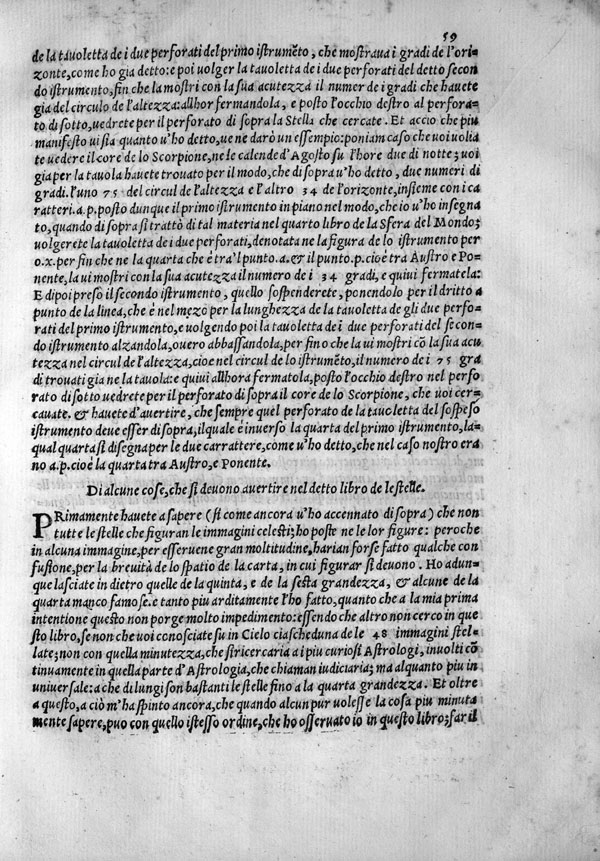 59
de la tavoletta de i due perforati del primo istrumẽto, che mostraua i gradi de l'ori-
zonte, come ho gia detto: e poi volger la tavoletta de i due perforati del detto secon
do istrumento, fin che la mostri con la sua acutezza il numer de i gradi che hauete
gia del circulo de l'altezza: allhor fermandola, e posto l'occhio destro al perfora-
to di sotto, uedrete per il perforato di sopra la Stella che cercate. Et accio che piu
manifesto ui sia quanto u'ho detto, ue ne darò un essempio: poniam caso che uoi uolia
te uedere il core de lo Scorpione, ne le calende d'Agosto su l'hore due di notte; uoi
gia per la tauola hauete trouato per il modo, che di sopra u'ho detto, due numeri di
gradi. l'uno 75 del circul de l'altezza e l'altro 34 de l'orizonte, insieme con i ca
ratteri .a.p. posto dunque il primo istrumento in piano nel modo, che io u'ho insegna
to, quando di sopra si trattò di tal materia nel quarto libro de la Sfera del Mondo;
uolgerete la tauoletta de i due perforati, denotata ne la figura de lo istrumento per
o.x. per fin che ne la quarta che è tra'l punto .a. & il punto .p. cioè tra Austro e Po-
nente, la ui mostri con la sua acutezza il numero de i 34 gradi, e quiui fermatela:
E dipoi preso il secondo istrumento, quello sospenderete, ponendolo per il dritto a
punto de la linea, che è nel mezo per la lunghezza de la tauoletta de gli due perfo-
rati del primo istrumento, e uolgendo poi la tauoletta de i due perforati del secon-
do istrumento alzandola, ouero abbassandola, per fino che la ui mostri cõ la sua acu
tezza nel circul de l'altezza, cioe nel circul de lo istrumẽto, il numero de i 75 gra
di trouati gia ne la tauola: e quiui allhora fermatola, posto l'occhio destro nel perfo
rato di sotto uedrete per il perforato di sopra il core de lo Scorpione, che uoi cer-
cauate. & hauete d'auertire, che sempre quel perforato de la tauoletta del sospeso
istrumento deue esser di sopra, ilquale è inuerso la quarta del primo istrumento, la-
qual quarta si disegna per le due carrattere, come u'ho detto, che nel caso nostro era
no a.p. cioè la quarta tra Austro, e Ponente.
Di alcune cose, che si deuono auertire nel detto libro de le stelle.
PRimamente hauete a sapere (si come ancora u'ho accennato di sopra) che non
tutte le stelle che figuran le immagini celesti; ho poste ne le lor figure: peroche
in alcuna immagine, per esseruene gran moltitudine, harian forse fatto qualche con
fusione, per la breuità de lo spatio de la carta, in cui figurar si deuono. Ho adun-
que lasciate in dietro quelle de la quinta, e de la sesta grandezza, & alcune de la
quarta manco famose. e tanto piu arditamente l'ho fatto, quanto che a la mia prima
intentione questo non porge molto impedimento: essendo che altro non cerco in que
sto libro, se non che uoi conosciate su in Cielo ciascheduna de le 48 immagini stel-
late; non con quella minutezza, che si ricercaria a i piu curiosi Astrologi, inuolti cõ
tinuamente in quella parte d'Astrologia, che chiaman iudiciaria; ma alquanto piu in
uniuersale: a che di lungi son bastanti le stelle fino a la quarta grandezza. Et oltre
a questo, a ciò m'ha spinto ancora, che quando alcun pur uolesse la cosa piu minuta
mente sapere, puo con quello istesso ordine, che ho osseruato io in questo libro; far il